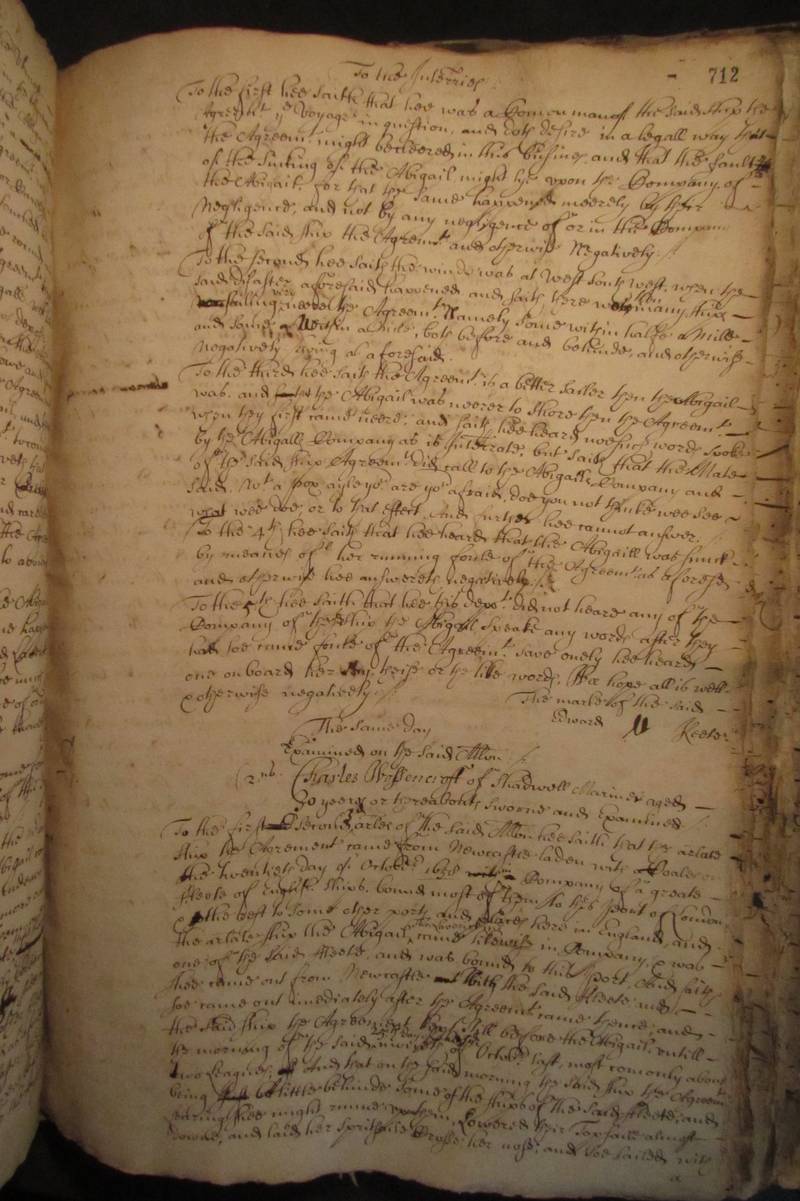 712
To the Interries.
To the first hee saith that hee was a Common man of the said ship the
Agreemt. ye voyage in question, and doth desire in a legall way that
the Agreemt. might bee cleered in this busines and that the fault
of the sinking of the Abigail might lye upon the Company of
the Abigail, for that the same happened meerely by their
negligence, and not by any negligence of or in the Company
of the said ship the Agreemt. and otherwise Negatively./
To the second hee saith the winde was at West South West, when the
said disaster aforesaid happened and saith there were then many ships
sailing neere the Agreemt. Namely some within halfe a Mile
and some within a Mile, both before and behinde, and otherwise
negatively saving as aforesaid.
To the third hee saith the Agreemt. is a better sailer then the Abigail
was, and the Abigail was neerer to shore then the Agreemt.
when they first came neere; and saith hee heard noe such words spoken
by the Abigails Company as is Interrate, but saith that the Mate
of the said ship Agreemt. did call to the Abigails Company and
said, Not a pox ayle yo. are yo. afraid, doe you not thinke wee see
what wee doe, or to that effect, And further hee cannot answer./
To the 4th. hee saith that hee heard that the Abigaill was sunck
by meanes of her running foule of the Agreemt. as aforesd.
and otherwise hee answereth negatively./
To the 5th hee saith that hee this depot. did not heare any of the
Company of the ship the Abigall speake any words after they
had soe come foule of the Agreemt. save onely hee heard
one onboard her say these or the like words, Wee hope all is well
& otherwise negatively./
The marke of the said
Edward Keeter
The same day
Examined on the said Allon./
2nd.
Charles Wolfencroft of Shadwell Mariner aged
30 yeeres or thereabouts sworne and Examined
To the first second arles of the said Allon hee saith that the arlate
ship the Agreement came from Newcastle laden with Coales on
the twentieth day of October 1658 Company of a greate
fleete of English ships, bound most of them to this port of London
& the rest to some other ports and places here in England, and
the arlate ship the Abigail came likewise in Company & was
one of the said fleete, and was bound to this port, And saith
shee came out from Newcastle with the said fleete and
soe came out imediately after the Agreemt. came thence, and
the said ship the Agreement kept still before the Abigail, untill
the morning of the said of October last, most comonly about
two leagues, And that on the said morning the said ship the Agreemt.
being a little behinde some of the ships of the said fleete, and
fearing shee might runne upon them, Lowered their Topsaile almost
downe, and laid her spritsaile crosse her nose, and soe sailed with
a